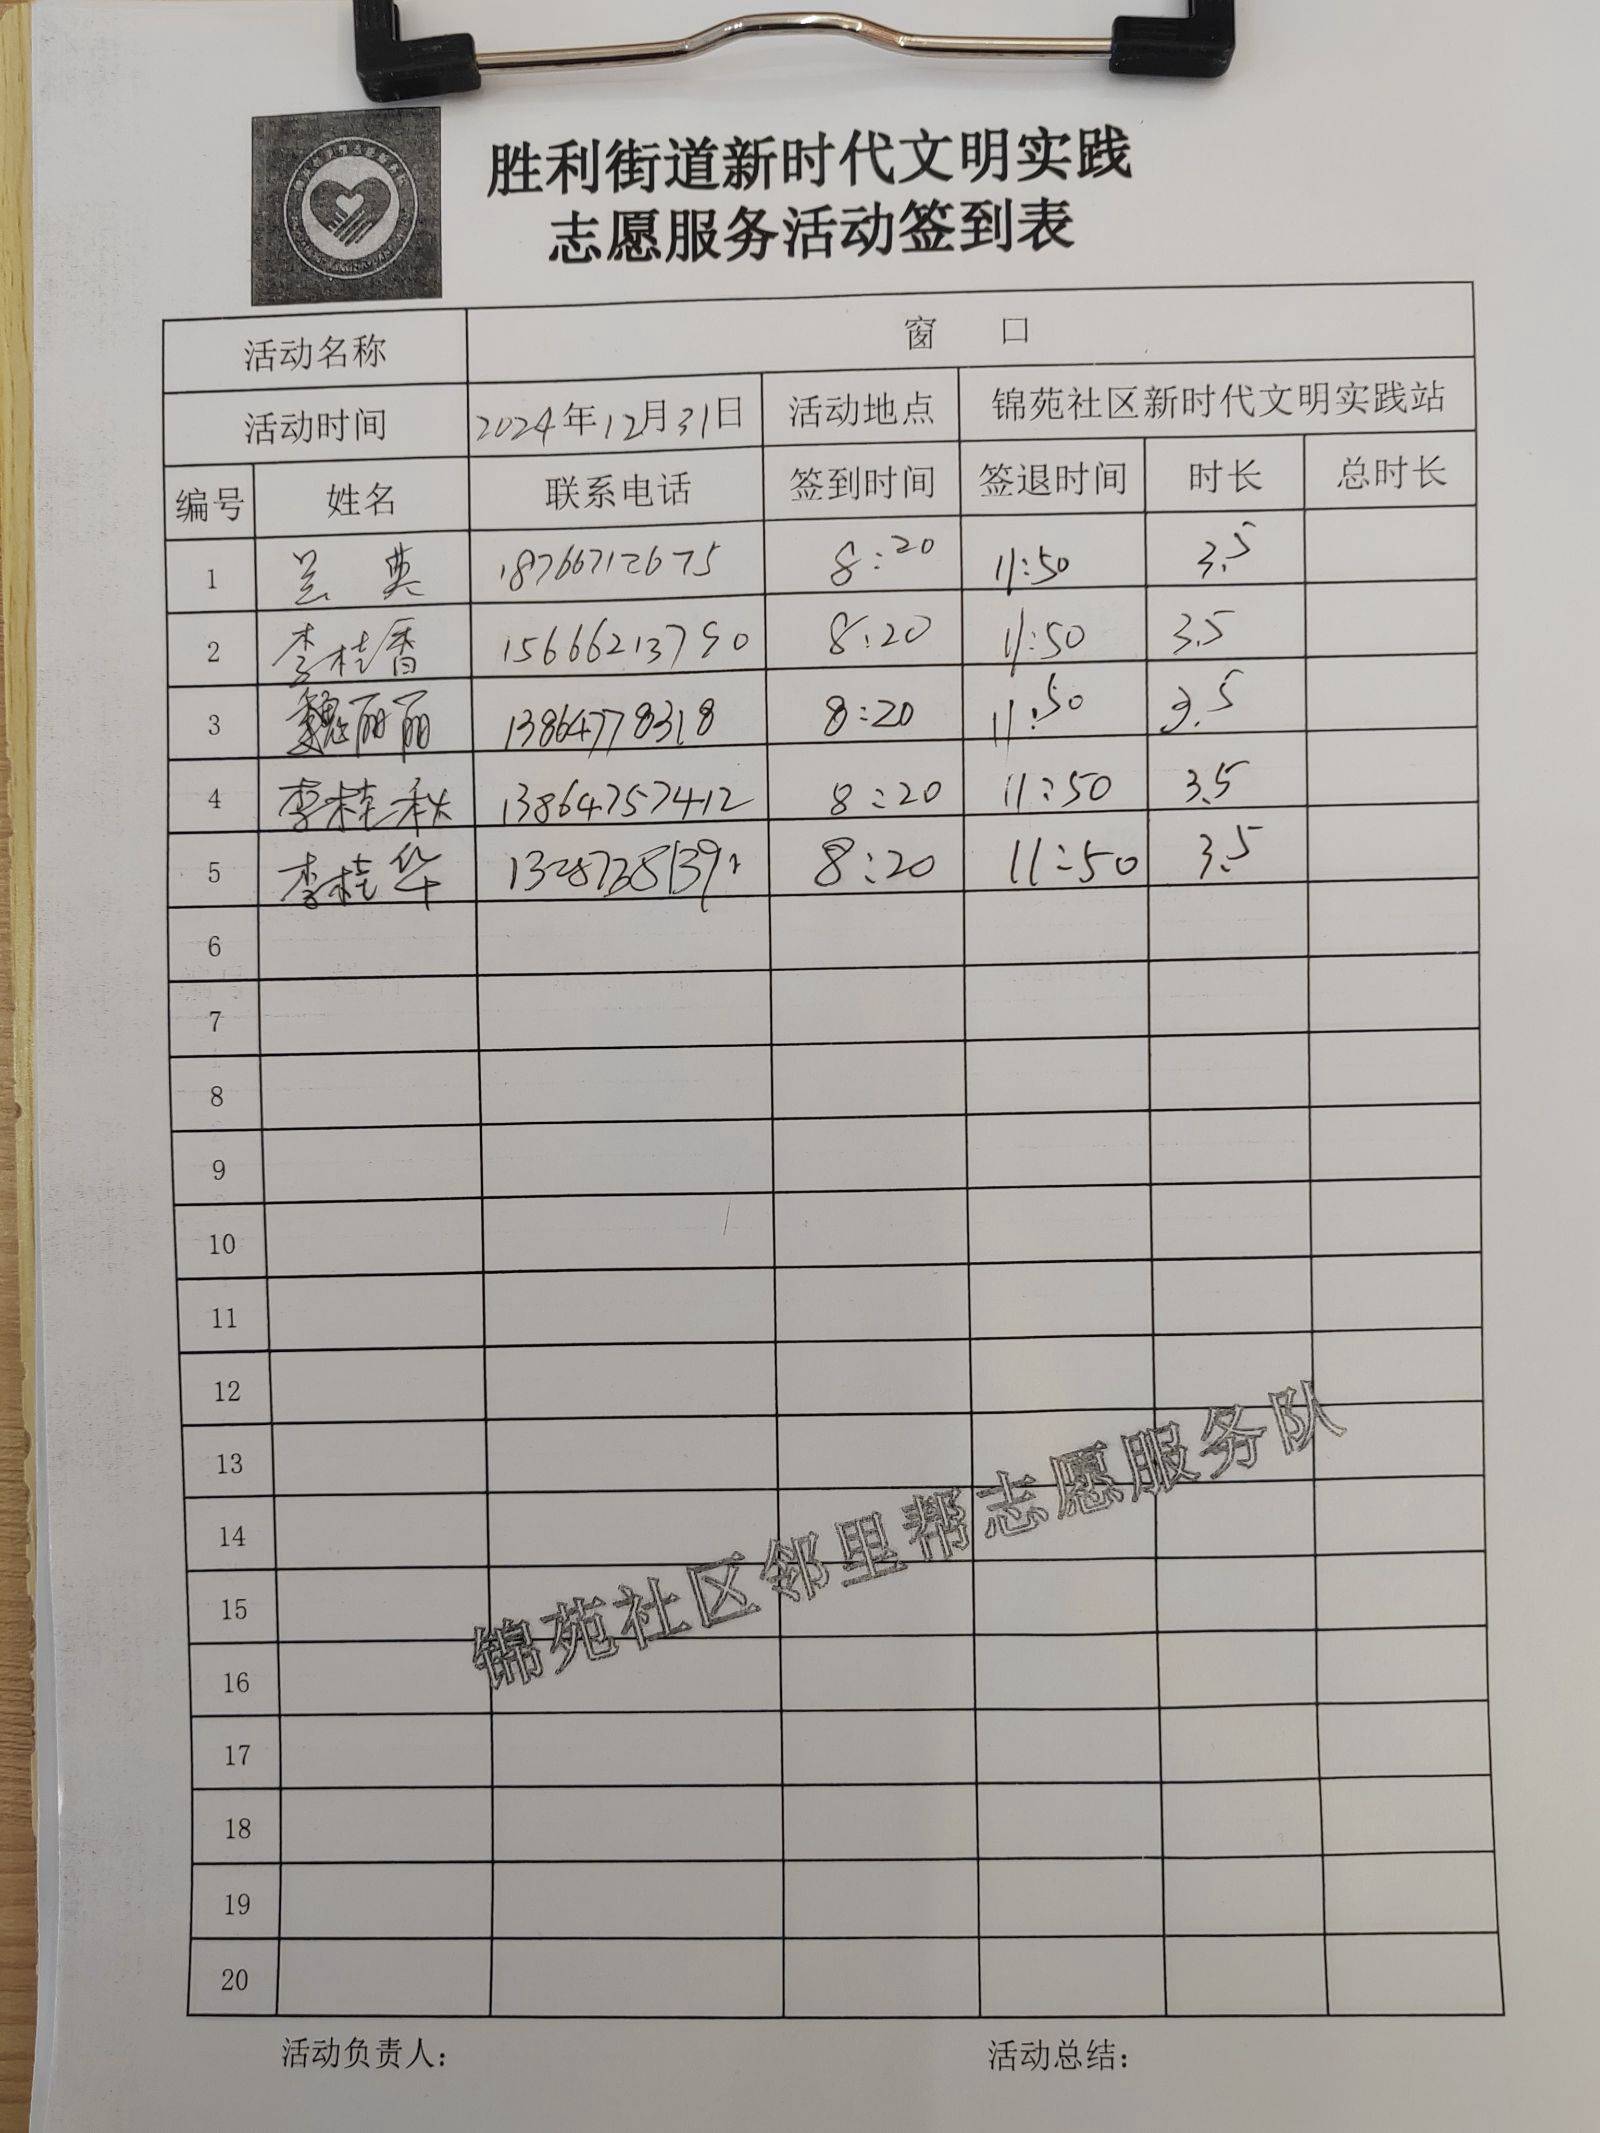 胜利街道新时代文明实践
志愿服务活动签到表
活动名称 窗 口
活动时间 2024年12月31日 活动地点 锦苑社区新时代文明实践站
编号 姓名 联系电话 签到时间 签退时间 时长 总时长
1 兰 英 18766712675 8:20 11:50 3.5
2 李桂香 15666213790 8:20 11:50 3.5
3 魏丽丽 13864778318 8:20 11:50 3.5
4 李桂秋 13864757412 8:20 11:50 3.5
5 李桂华 8:20 11:50 3.5
6
7
8
9
10
11
12
13
14
15
16
17
18
19
20
锦苑社区邻里帮志愿服务队
活动负责人： 活动总结：